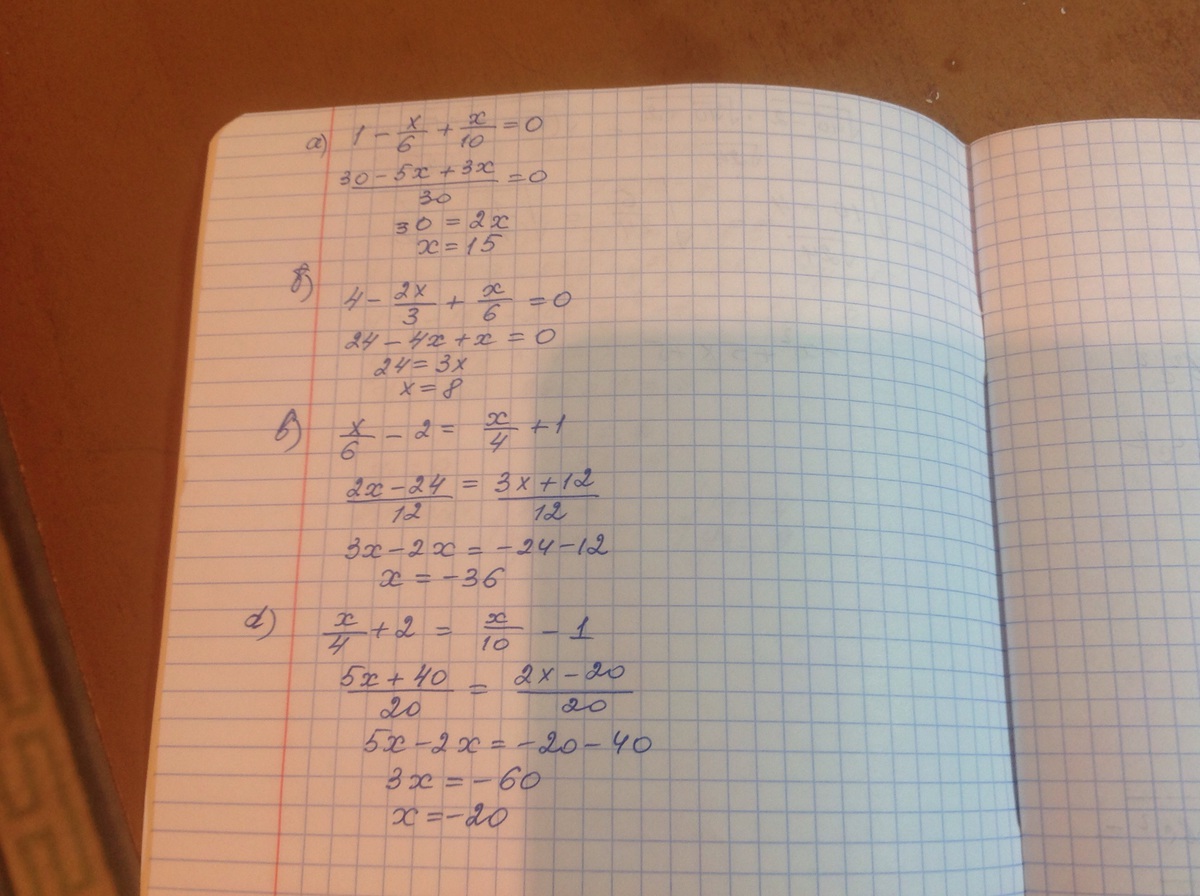 а) 1 - x/6 + x/10 = 0
(30 - 5x + 3x)/30 = 0
30 = 2x
x = 15
б)
4 - 2x/3 + x/6 = 0
24 - 4x + x = 0
24 = 3x
x = 8
в) x/6 - 2 = x/4 + 1
(2x - 24)/12 = (3x + 12)/12
3x - 2x = -24 - 12
x = -36
д) x/4 + 2 = x/10 - 1
(5x + 40)/20 = (2x - 20)/20
5x - 2x = -20 - 40
3x = -60
x = -20